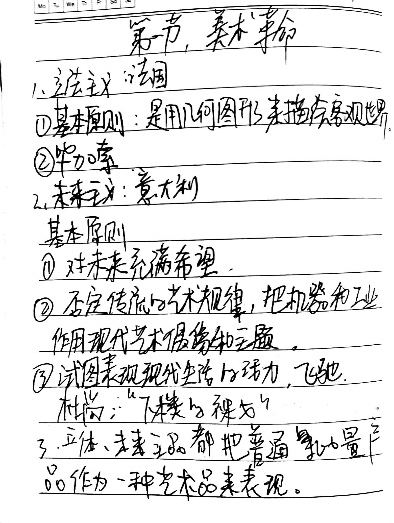 第一节,美术革命
1、立法主义:法国
①基本原则:是用几何图形来描绘客观世界.
②毕加索
2、未来主义:意大利
基本原则
①对未来充满希望.
②否定传统的艺术规律,把机器和工业
作用现代艺术偶像和主题。
③试图表现现代生活的活力,飞驰.
杜尚:“下楼的裸女”
3、立体、未来主义都把普通量产
品作为一种艺术品来表现。